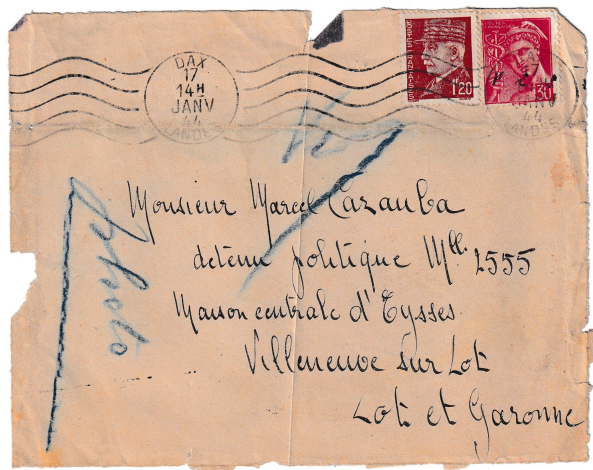 DAX
17
14H
JANV
44
LANDES
1.20
30
44
LANDES
Photo
Monsieur Marcel Cazauba
detenu politique Mlle 2555
Maison centrale d'Eysses
Villeneuve sur Lot
Lot et Garonne